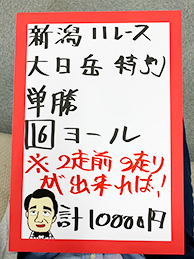 新潟11レース
大日岳特別
単勝
16 ヨール
※2走前の走り
が出来れば!
計10000円